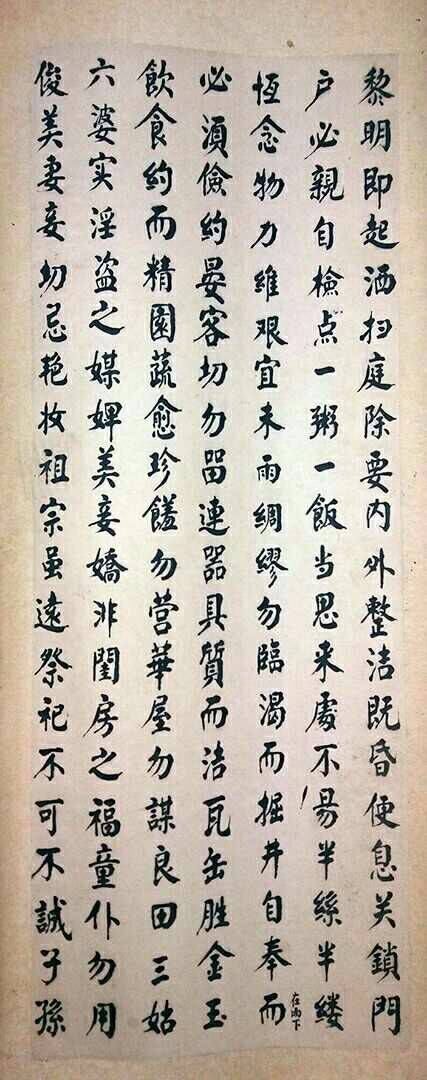 黎明即起洒扫庭除要内外整洁既昏便息关鎖門
户必親自檢点一粥一飯当思来處不易半絲半缕
恆念物力維艰宜未雨綢繆勿臨渴而掘井自奉而
必須儉約晏客切勿畱連器具質而洁瓦缶胜金玉
飲食約而精園蔬愈珍饈勿营華屋勿謀良田三姑
六婆实淫盗之媒婢美妾嬌非閨房之福童仆勿用
俊美妻妾切忌艳妆祖宗虽遠祭祀不可不誠子孫